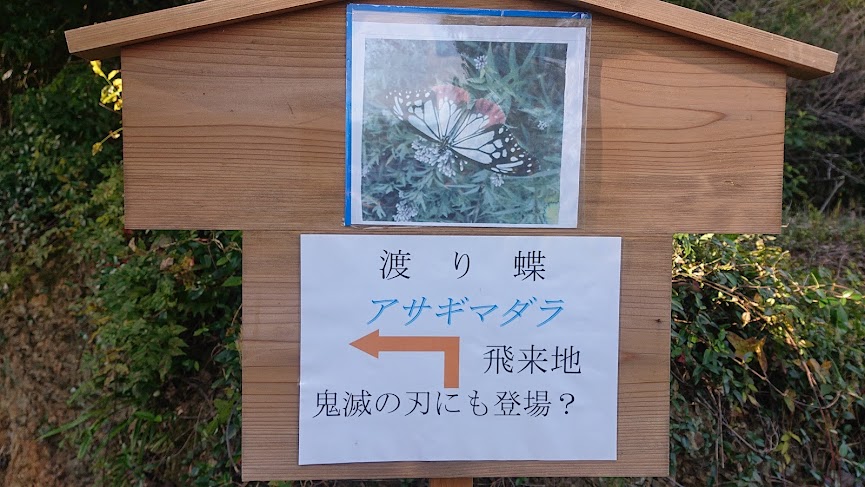 渡り蝶
アサギマダラ
飛来地
鬼滅の刃にも登場？